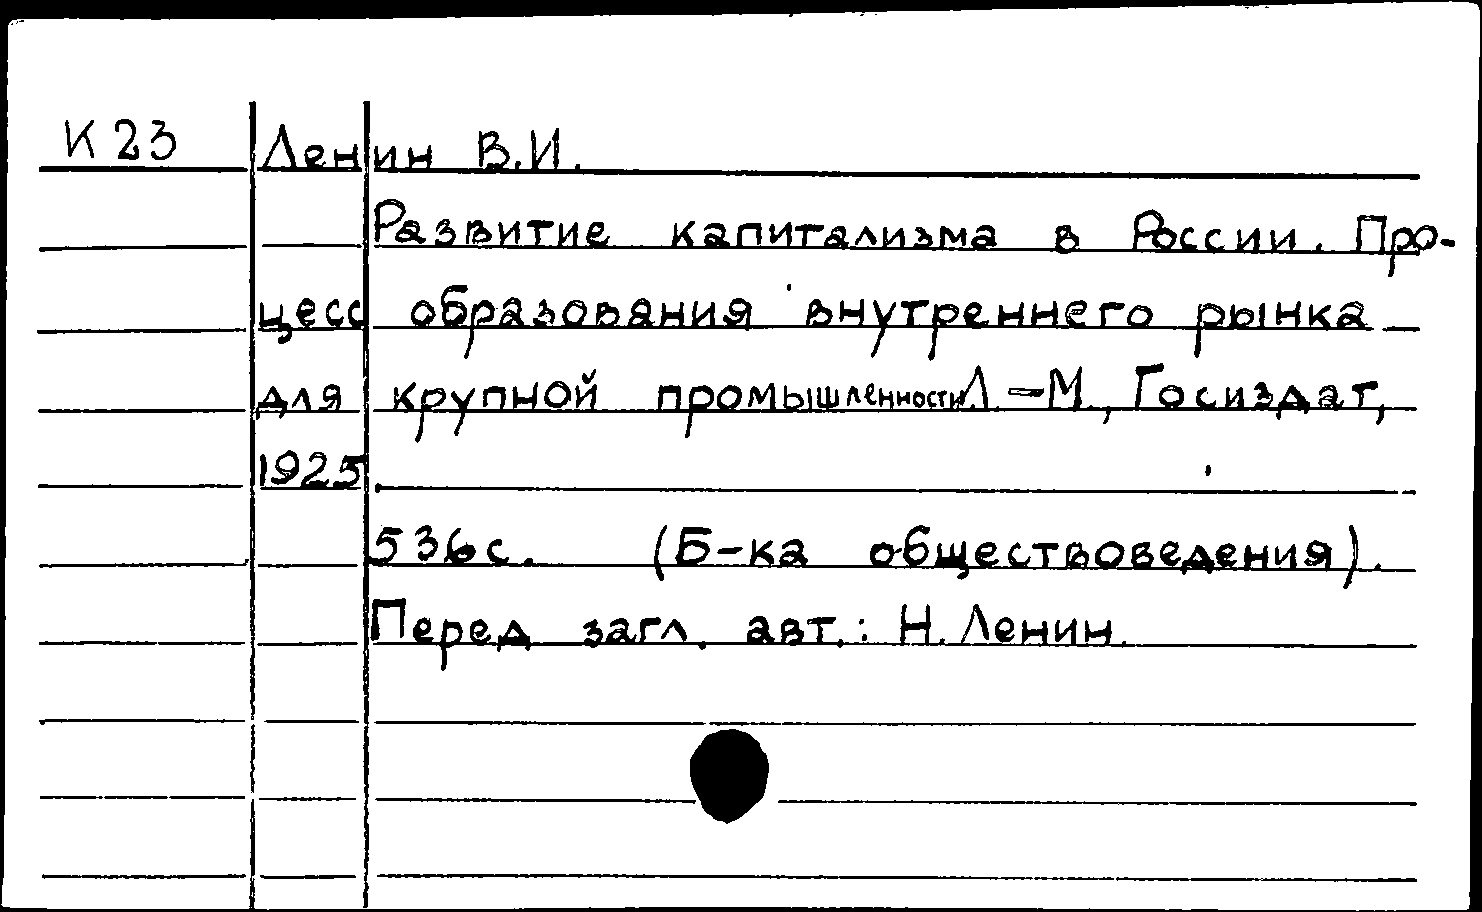 К 23 Ленин В.И.
Развитие капитализма в России. Про-
цесс образования внутреннего рынка
для крупной промышленности Л.-М., Госиздат,
1925.
536с. (Б-ка обществоведения).
Перед загл. авт.: Н. Ленин.